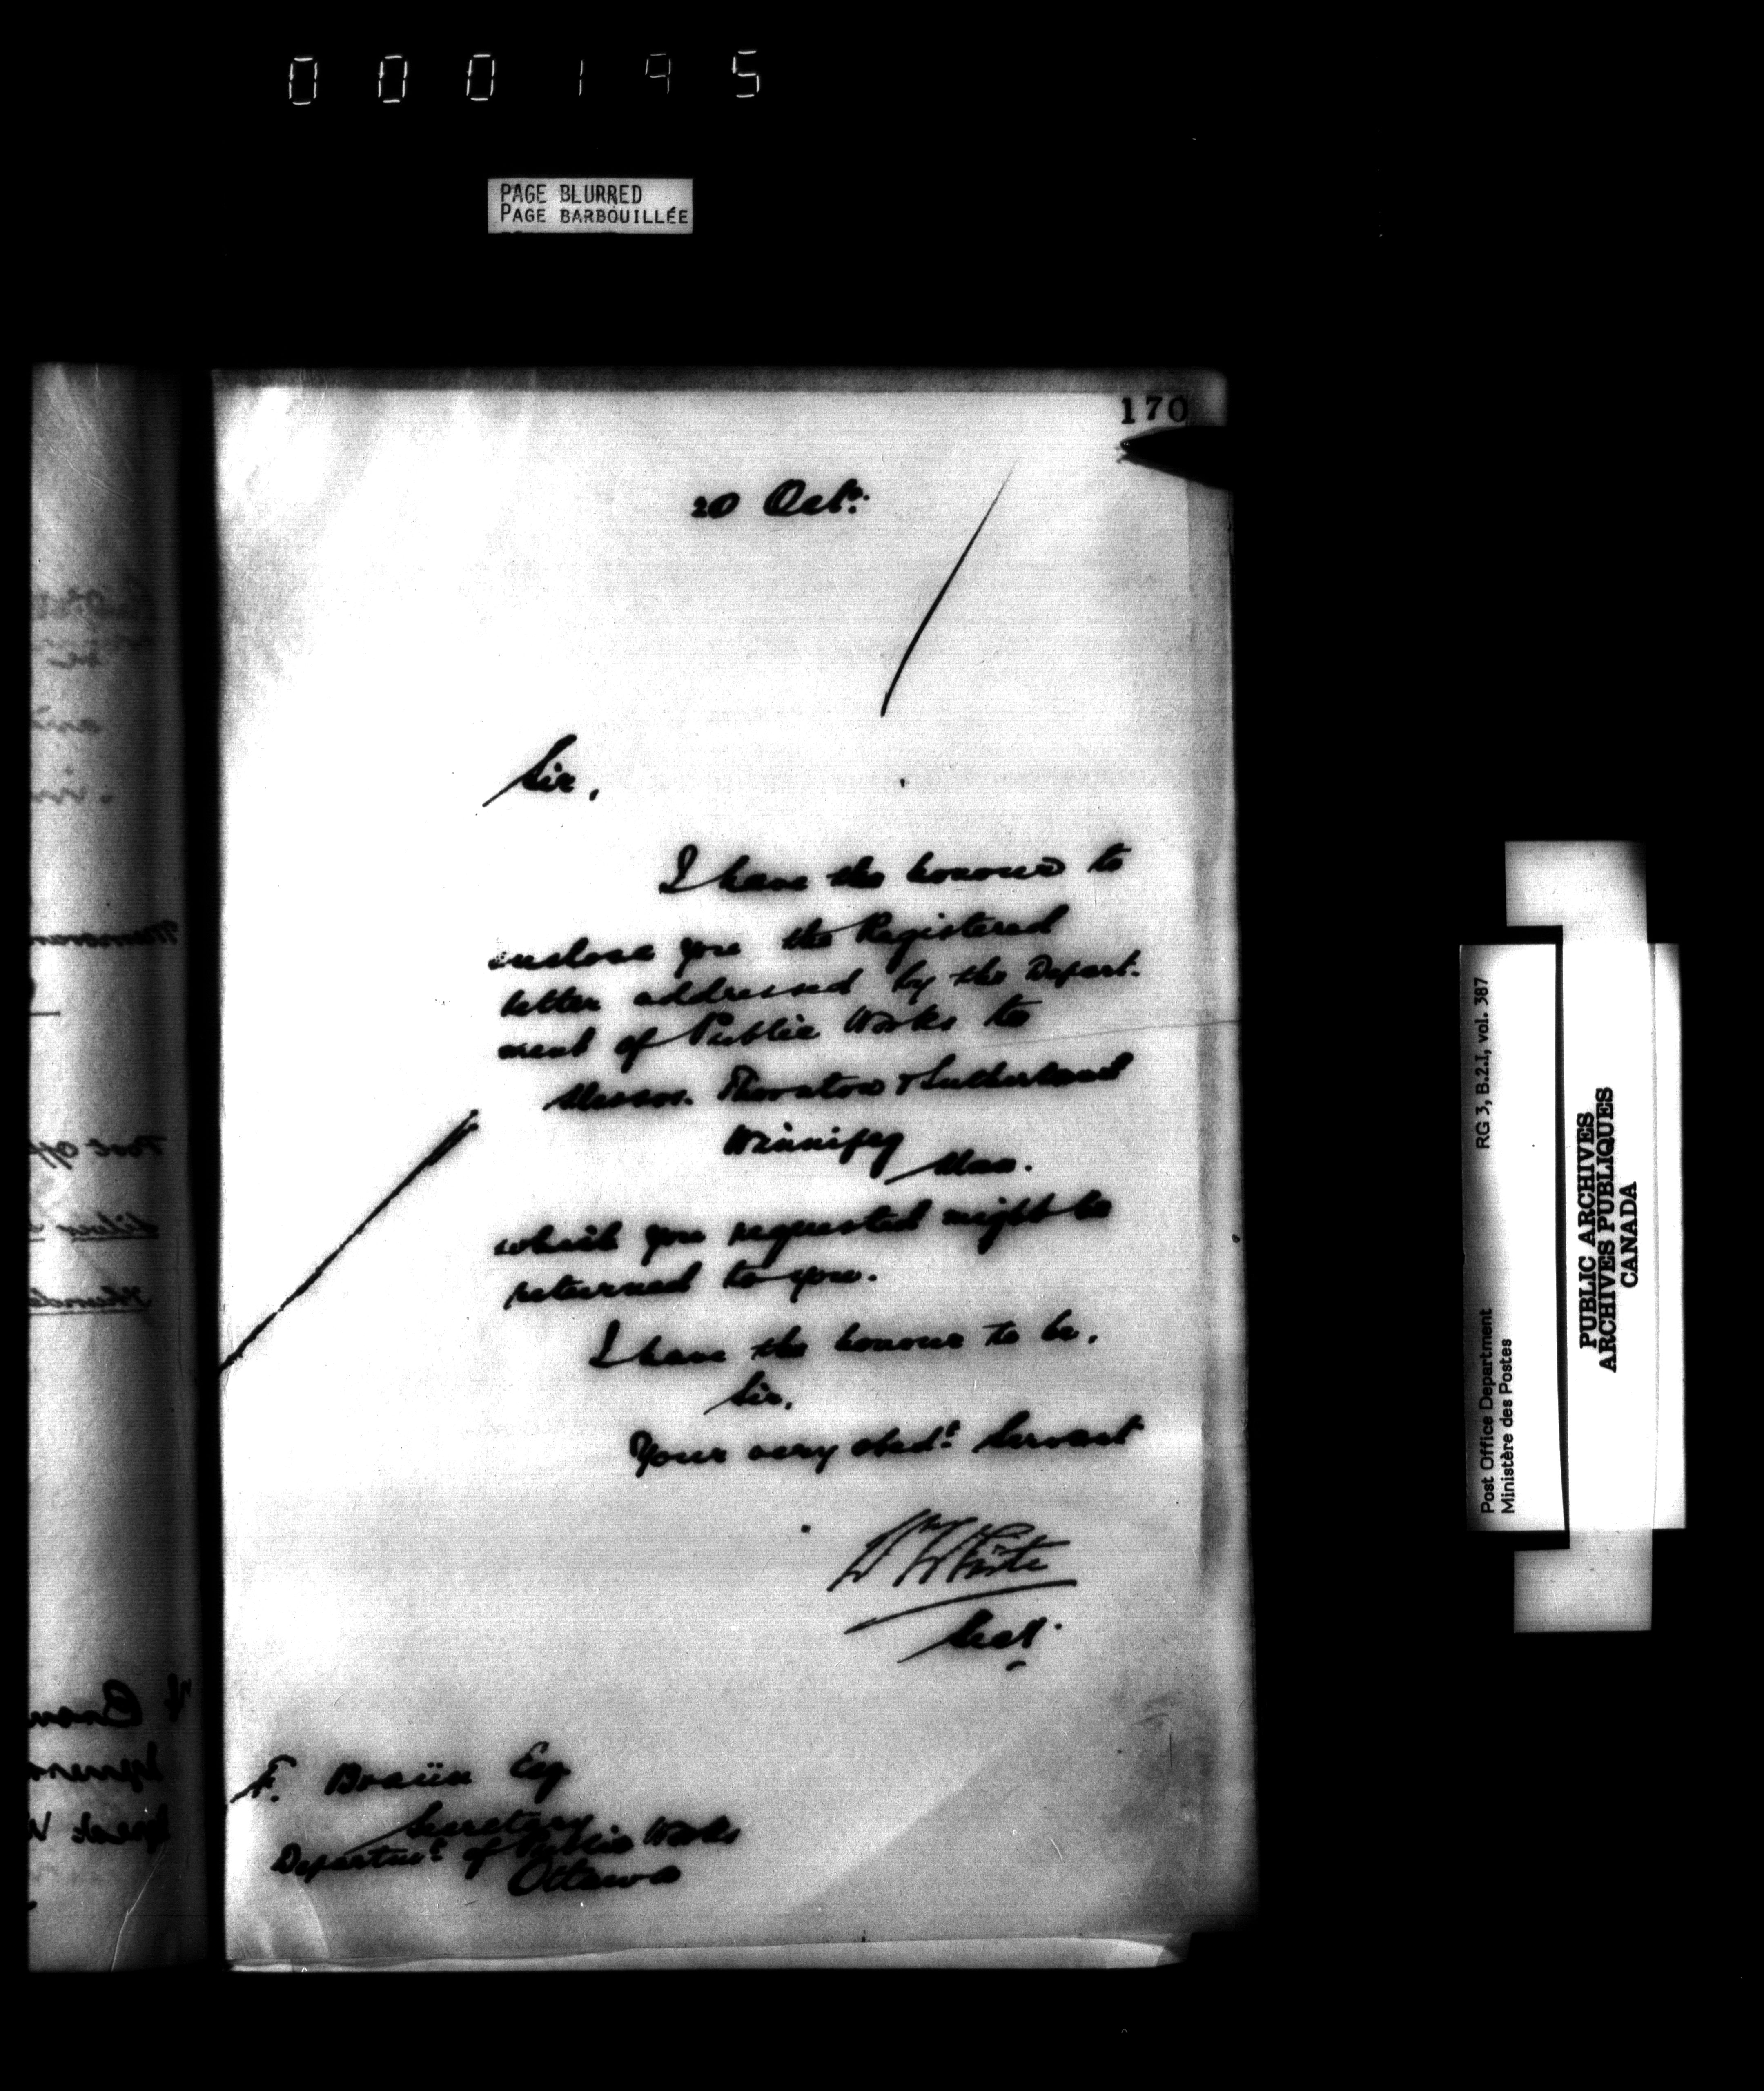 000195
PAGE BLURRED
PAGE BARBOUILLÉE
170
20 Octr.
Sir,
I have the honour to
enclose you the Registered
letter addressed by the Depart-
ment of Public Works to
Messrs. Thornton & Sutherland
Winnipeg
Man.
which you requested might be
returned to you.
I have the honour to be.
Sir,
Your very obedt. Servant
Wm White
Secy.
F. Braün Esq
Secretary
Departmt. of Public Works
Ottawa
RG 3, B.2.I, vol. 387
Post Office Department
Ministère des Postes
PUBLIC ARCHIVES
ARCHIVES PUBLIQUES
CANADA